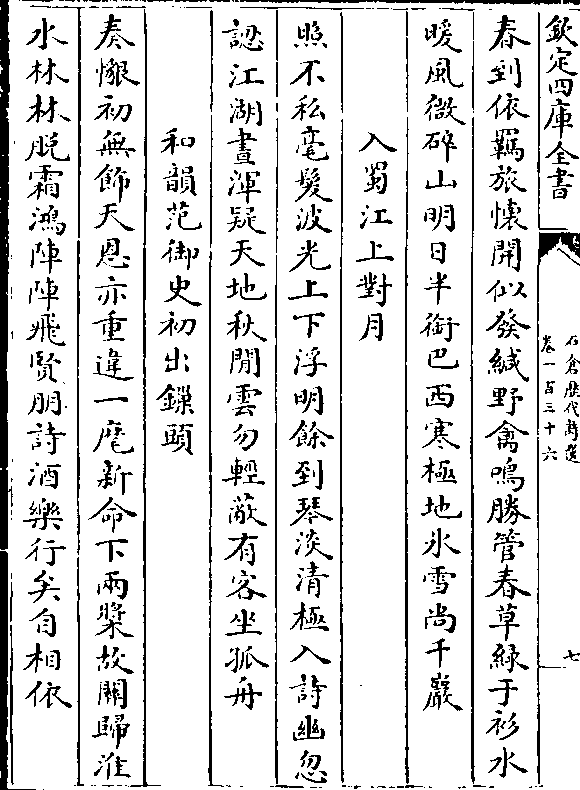 欽定四庫全書
石倉歷代詩選
卷一百三十六
七
春到依羈旅懷開似發緘野禽鳴勝管春草緑于衫水
暖風微碎山明日半銜巴西寒極地氷雪尚千巖
入蜀江上對月
照不私毫髮波光上下浮明餘到琴淡清極入詩幽忽
認江湖晝渾疑天地秋閒雲勿輕蔽有客坐孤舟
和韻范御史初出鏁頭
奏懇初無飾天恩亦重違一麾新命下兩槳故關歸淮
水林林脱霜鴻陣陣飛賢朋詩酒樂行矣自相依